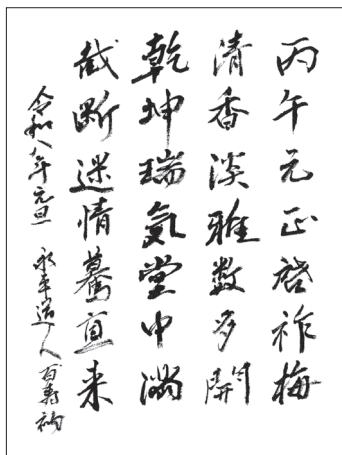 丙午元正啓祚梅
清香淡雅数多開
乾坤瑞気堂中満
截断迷情驀直来
令和八年元旦 永平道人百寿衲